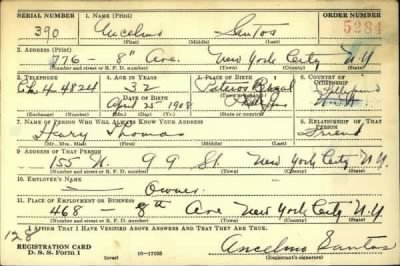 SERIAL NUMBER 1. NAME (Print) ORDER NUMBER
390 Ancelmo Santos 5284
(First) (Middle) (Last)
2. ADDRESS (Print)
776 - 8" Ave. New York City N.Y
(Number and street or R. F. D. number) (Town) (County) (State)
3. TELEPHONE 4. AGE IN YEARS 5. PLACE OF BIRTH 6. COUNTRY OF CITIZENSHIP
Ch 4 4824 32
DATE OF BIRTH
April 25 1908
(Exchange) (Number) (Mo.) (Day) (Yr.) (State or country)
7. NAME OF PERSON WHO WILL ALWAYS KNOW YOUR ADDRESS 8. RELATIONSHIP OF THAT PERSON
Henry Thomas Friend
(Mr., Mrs., Miss) (First) (Middle) (Last)
9. ADDRESS OF THAT PERSON
155 W. 99 St New York City N.Y.
(Number and street or R. F. D. number) (Town) (County) (State)
10. EMPLOYER'S NAME
Owner
11. PLACE OF EMPLOYMENT OR BUSINESS
468 - 8th Ave New York City N.Y
(Number and street or R. F. D. number) (Town) (County) (State)
128 I AFFIRM THAT I HAVE VERIFIED ABOVE ANSWERS AND THAT THEY ARE TRUE.
REGISTRATION CARD
D. S. S. Form 1 (over) 16-17105 Ancelmo Santos
(Registrant's signature)